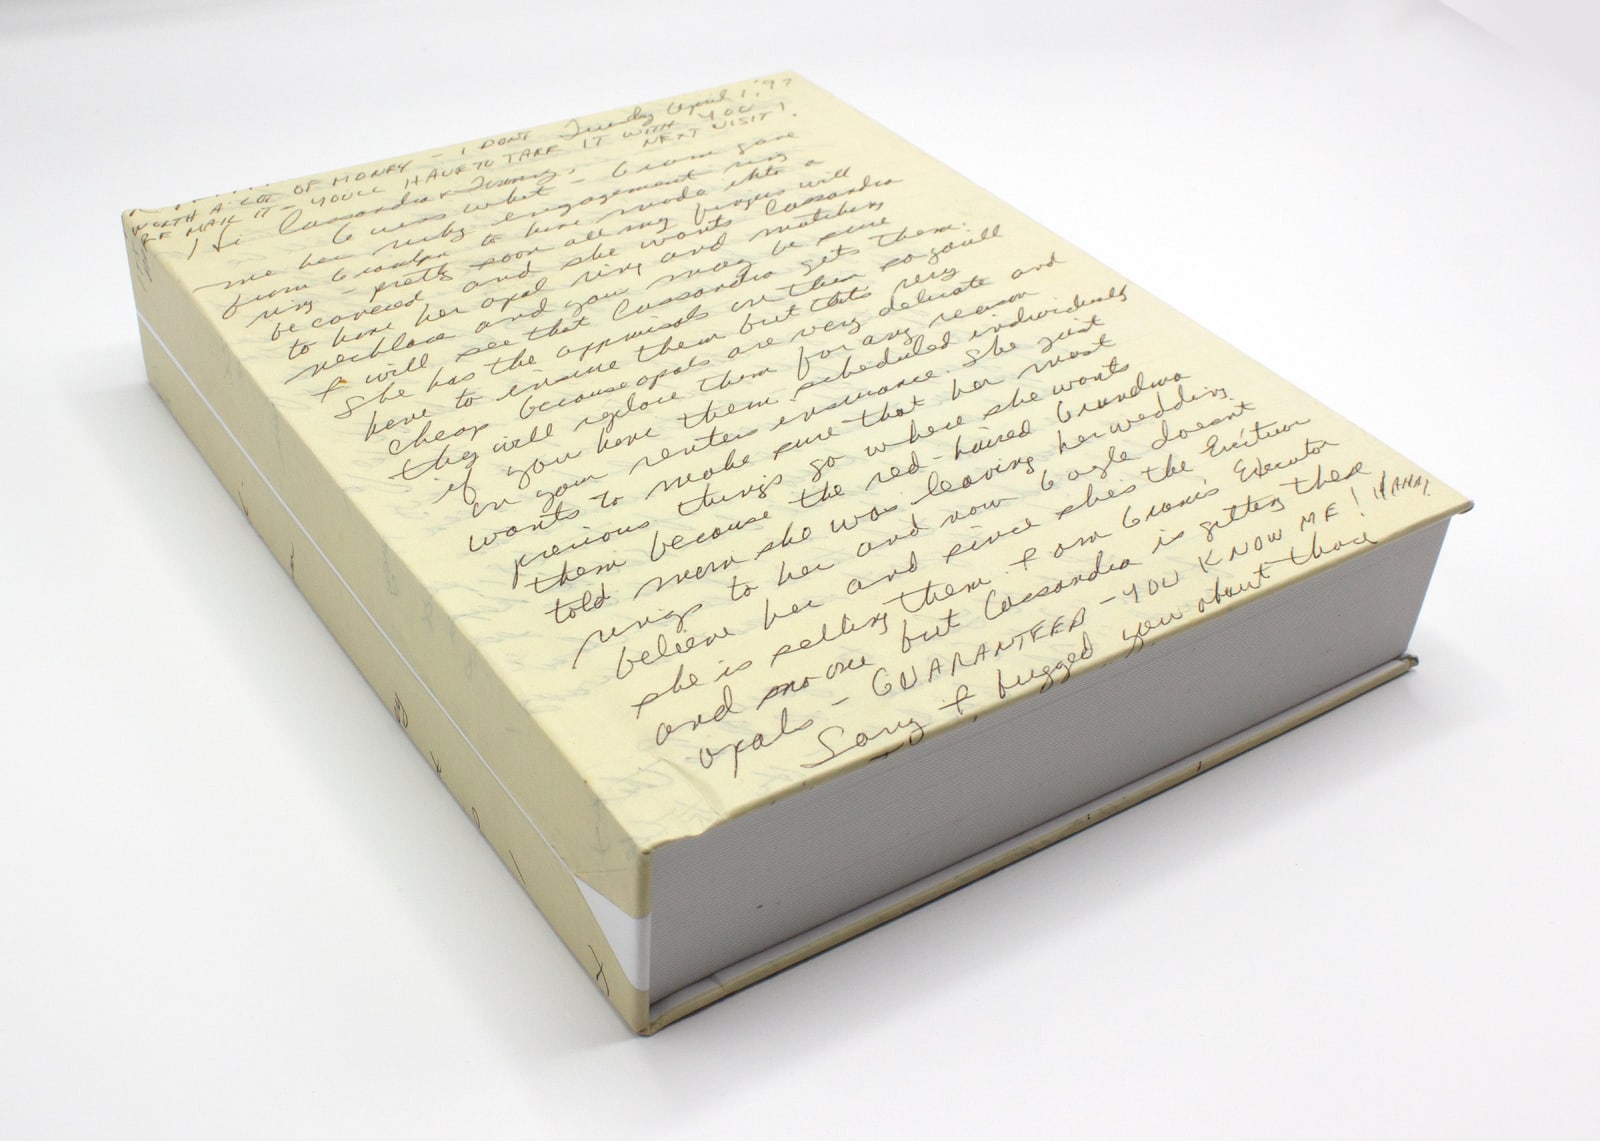 WORTH A LOT OF MONEY - I DONT Tuesday April 1, '97
MAIL IT - YOU'LL HAVE TO TAKE IT WITH YOU
NEXT VISIT!
Hi Cassandra & Jimmy,
Guess what - Gram gave
me her ruby engagement ring
from Grandpa to have made into a
ring - pretty soon all my fingers will
be covered and she wants Cassandra
to have her opal ring and matching
necklace and you may be sure
I will see that Cassandra gets them.
She has the appraisals on them so you'll
have to insure them but thats very
cheap because opals are very delicate and
they will replace them for any reason
if you have them scheduled individually
on your renters insurance. She just
wants to make sure that her most
precious things go where she wants
them because the red-haired Grandma
told mom she was leaving her wedding
rings to her and now doesnt
believe her and since shes the
she is selling them. I am Gram's Executor
and no one but Cassandra is getting these
opals - GUARANTEED - YOU KNOW ME! HAHA!
Sorry I bugged you about those